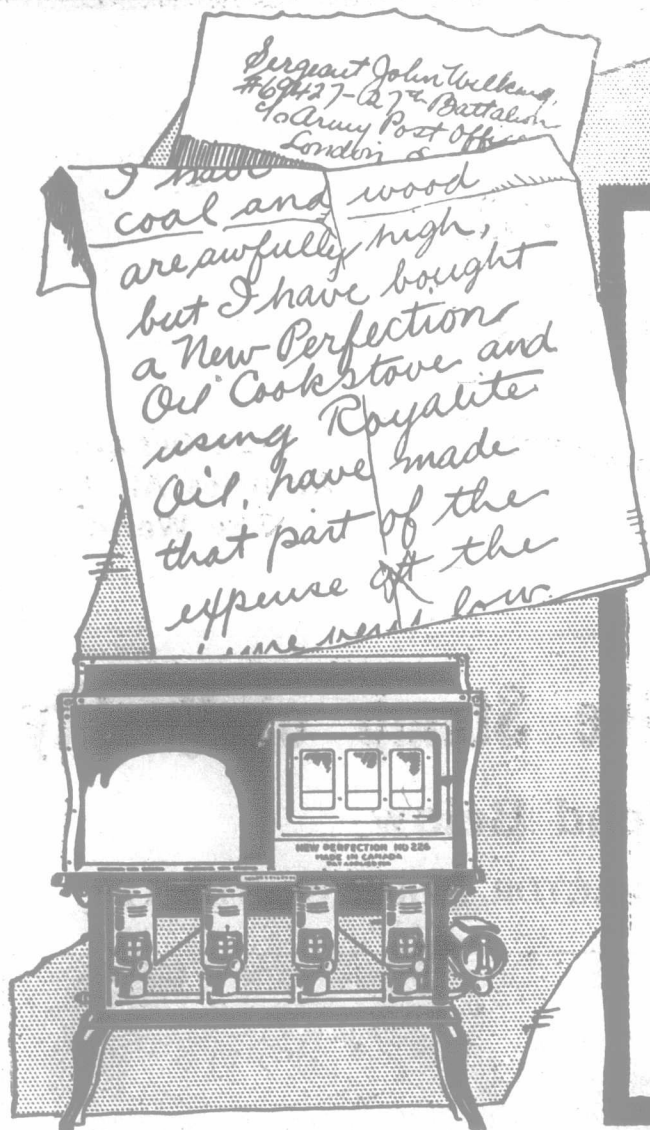 Sergeant John Wilkins,
#69427 - 27th Battalion
c/o Army Post Office
London
I have
coal and wood
are awfully high,
but I have bought
a New Perfection
Oil Cookstove and
using Royalite
Oil, have made
that part of the
expense at the
very low
NEW PERFECTION NO 226
MADE IN CANADA